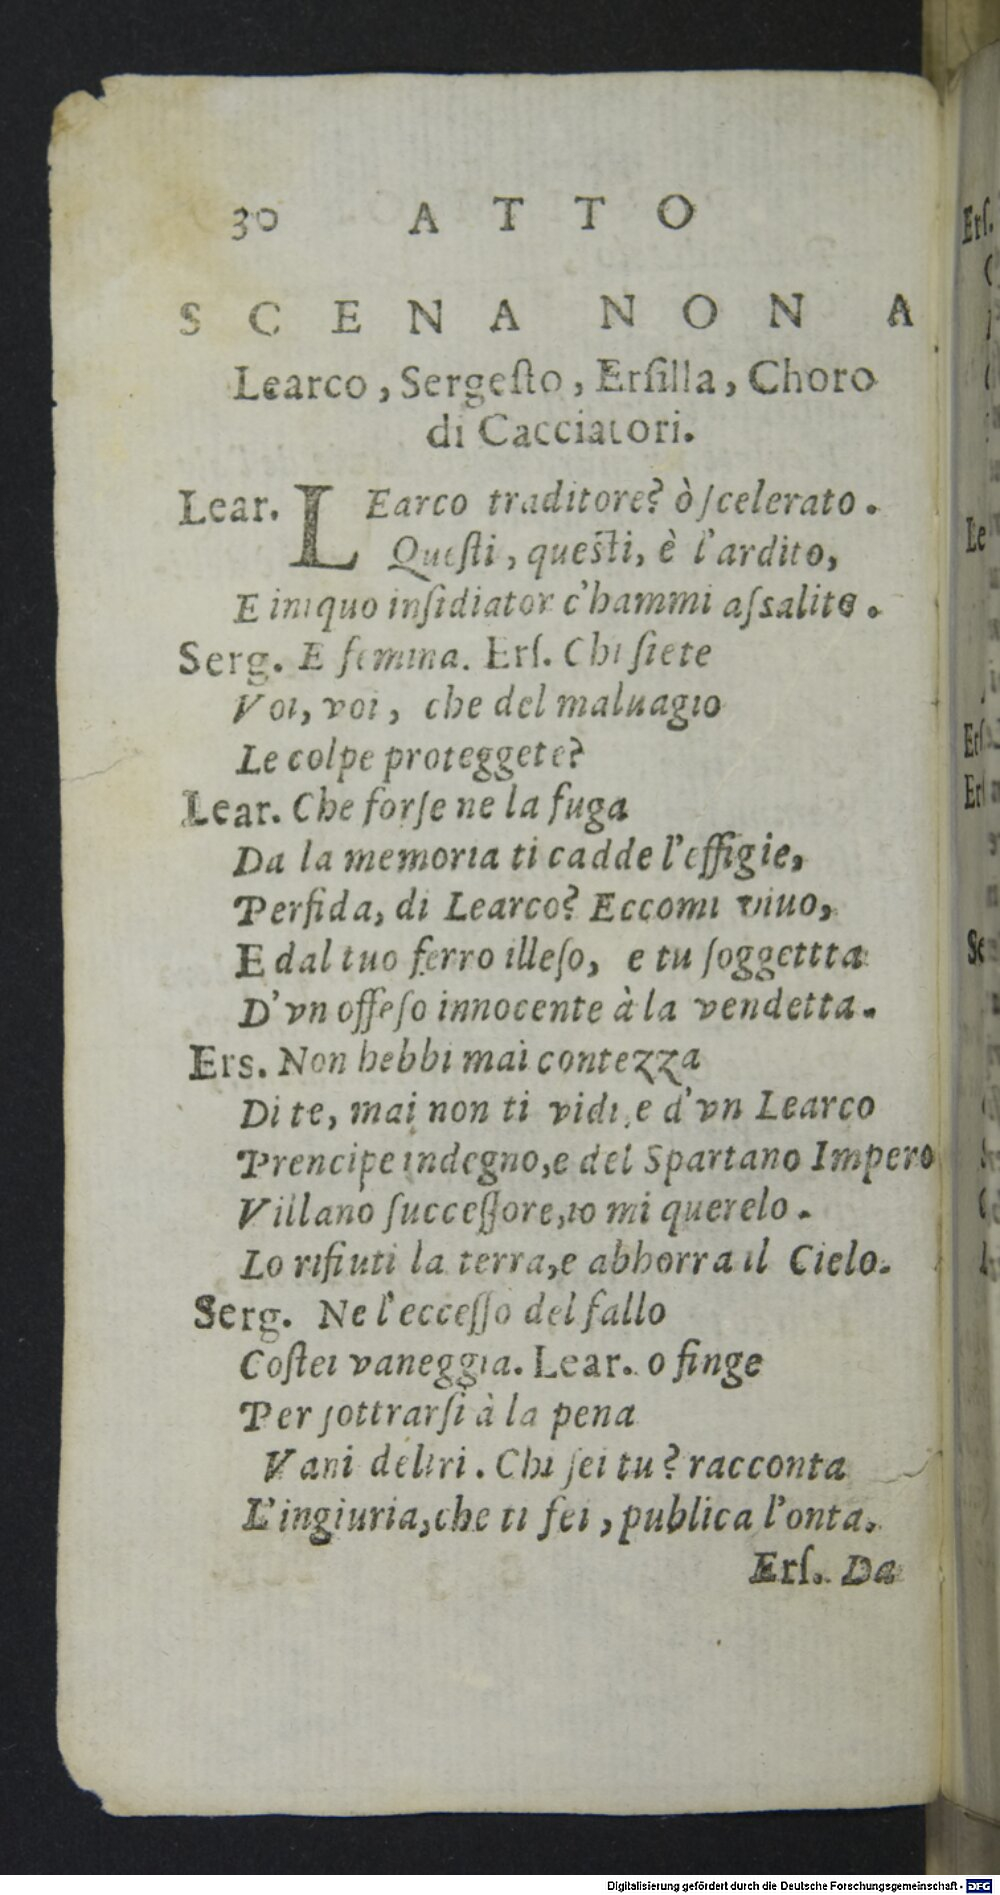 30 ATTO
SCENA NONA
Learco, Sergeſto, Erſilla, Choro
di Cacciatori.
Lear. LEarco traditore? ò ſcelerato.
Queſti, queſti, è l'ardito,
E iniquo inſidiator c'hammi aſsalito.
Serg. E femina. Erſ. Chi ſiete
Voi, voi, che del maluagio
Le colpe proteggete?
Lear. Che forſe ne la fuga
Da la memoria ti cadde l'effigie,
Perfida, di Learco? Eccomi viuo,
E dal tuo ferro illeſo, e tu ſoggettta
D'vn offeſo innocente à la vendetta.
Ers. Non hebbi mai contezza
Di te, mai non ti vidi, e d'vn Learco
Prencipe indegno, e del Spartano Impero
Villano ſucceſſore, io mi querelo.
Lo rifiuti la terra, e abhorra il Cielo.
Serg. Ne l'ecceſſo del fallo
Coſtei vaneggia. Lear. o finge
Per ſottrarſi à la pena
Vani deliri. Chi ſei tu? racconta
L'ingiuria, che ti fei, publica l'onta.
Erſ. Da
Erſ.
Le
Erſ
Erſ
Se
Digitalisierung gefördert durch die Deutsche Forschungsgemeinschaft - DFG